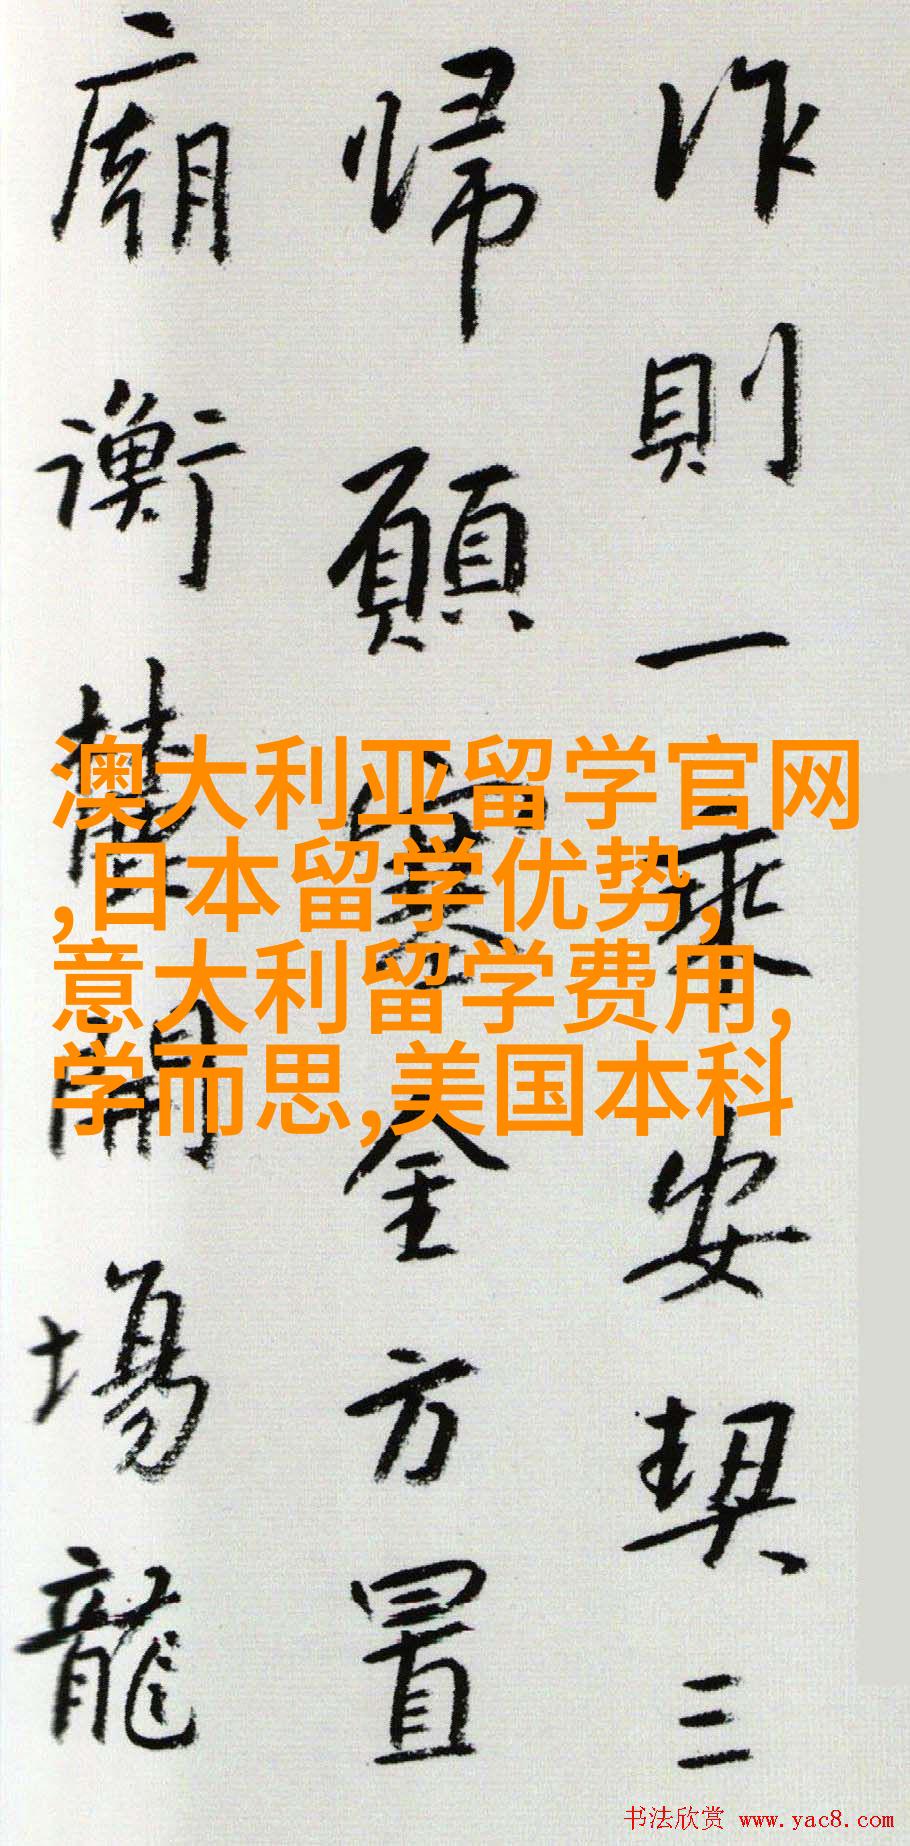 作則一乘安契三
歸願寮全方置
廟衡替開場龍
澳大利亚留学官网
,日本留学优势,
意大利留学费用,
学而思,美国本科
书法欣赏 www.yac8.com